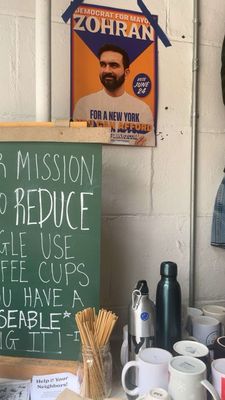 DEMOCRAT FOR MAYOR
ZOHRAN
VOTE
JUNE
24
FOR A NEW YORK
YOU CAN AFFORD
R MISSION
O REDUCE
GLE USE
FEE CUPS
YOU HAVE A
SEABLE*
NG IT! -
Help it
Neighbors!